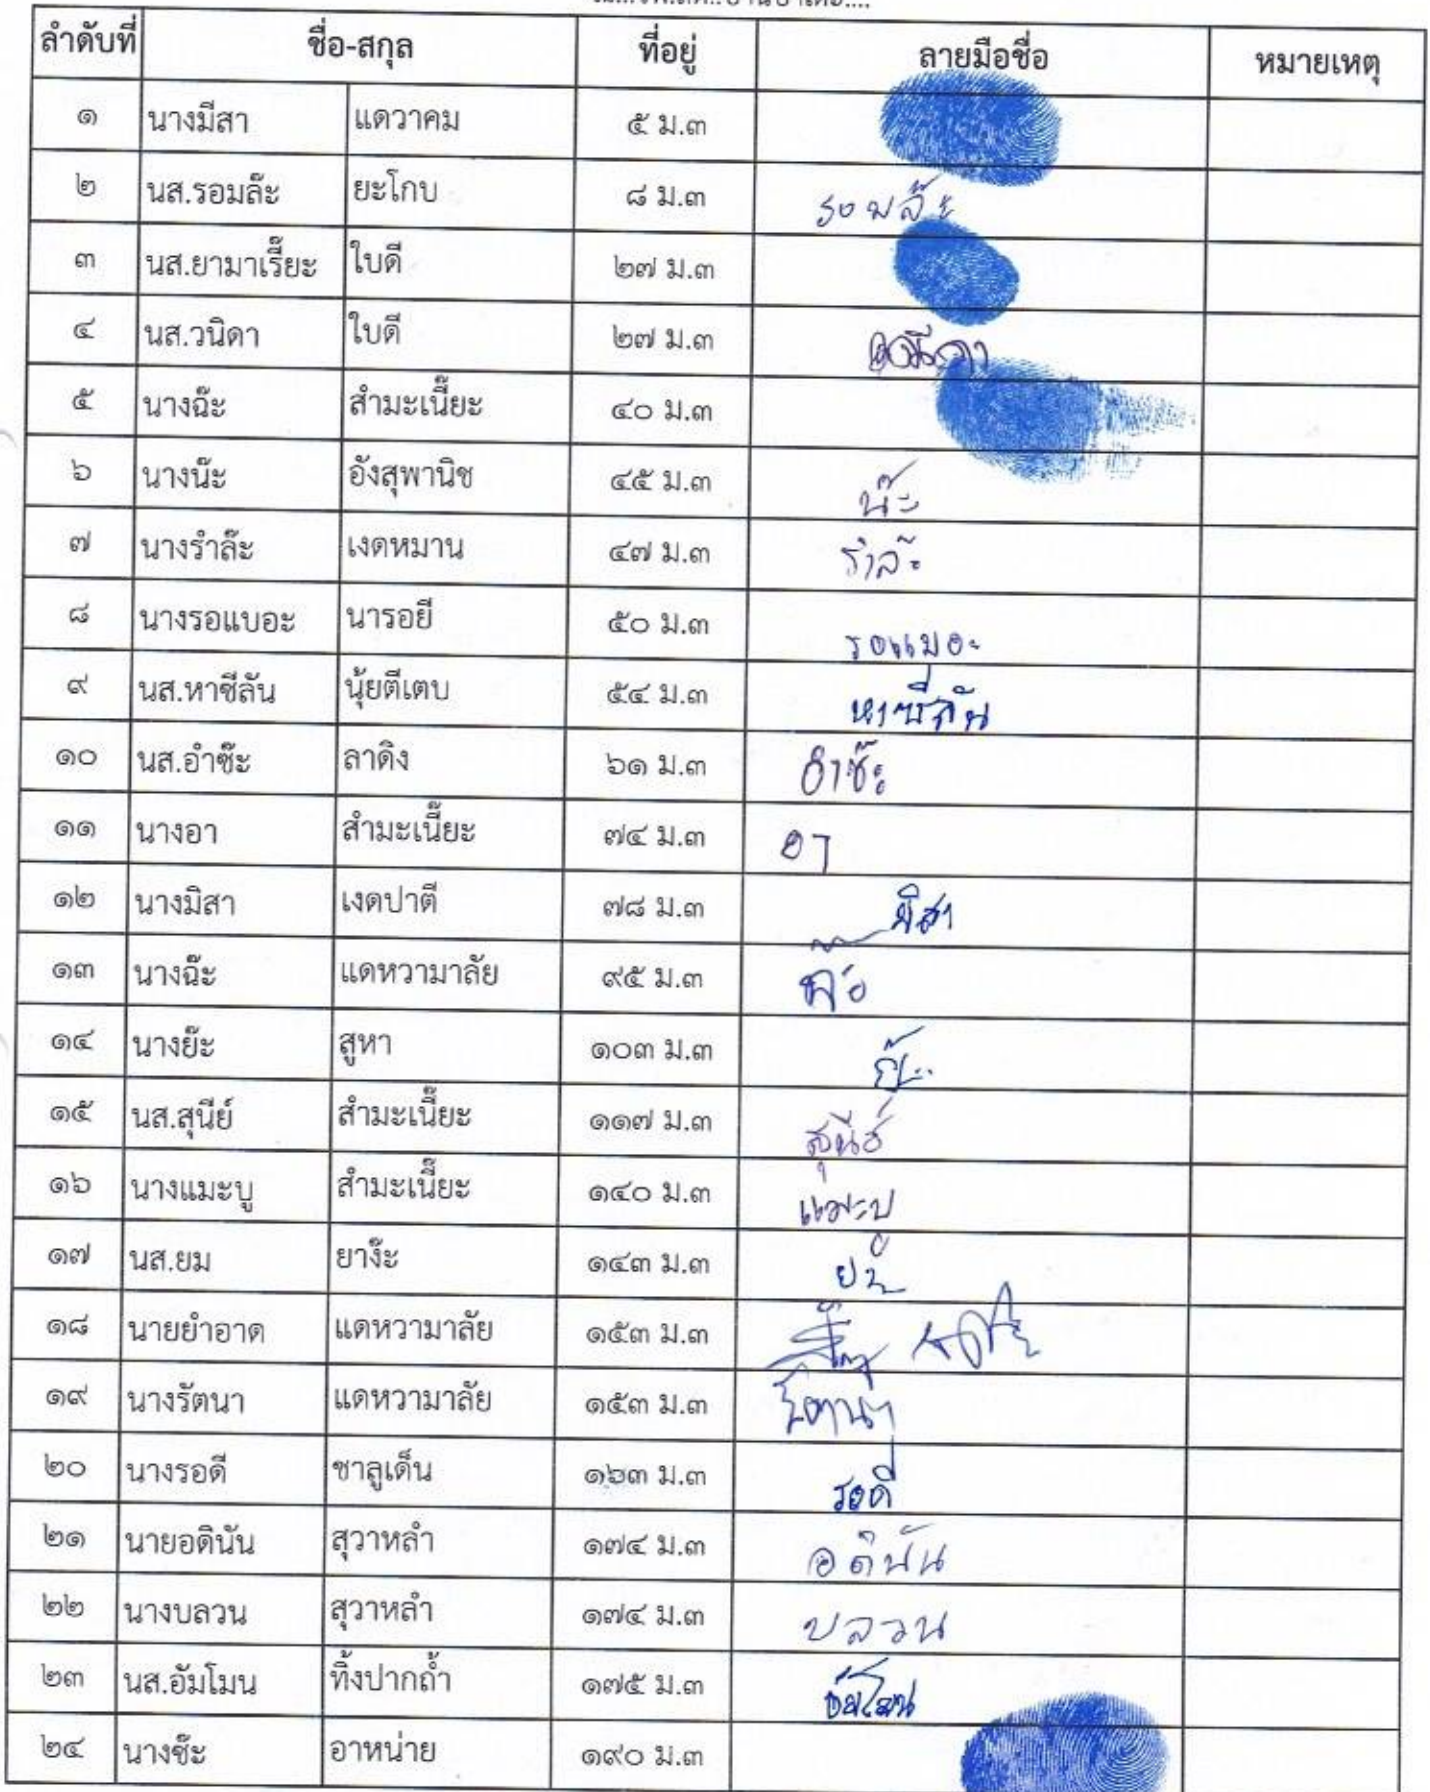 ลำดับที่ ชื่อ-สกุล ที่อยู่ ลายมือชื่อ หมายเหตุ
๑ นางมีสา แดวาคม ๕ ม.๓
๒ นส.รอมล๊ะ ยะโกบ ๘ ม.๓ รอมล๊ะ
๓ นส.ยามาเรี๊ยะ ใบดี ๒๗ ม.๓
๔ นส.วนิดา ใบดี ๒๗ ม.๓
๕ นางฉ๊ะ สำมะเนี๊ยะ ๔๐ ม.๓
๖ นางน๊ะ อังสุพานิช ๔๕ ม.๓ น๊ะ
๗ นางรำล๊ะ เงดหมาน ๔๗ ม.๓ รำล๊ะ
๘ นางรอแบอะ นารอยี ๕๐ ม.๓
๙ นส.หาซีลัน นุ้ยตีเตบ ๕๔ ม.๓ หาซีลัน
๑๐ นส.อำซ๊ะ ลาดิง ๖๑ ม.๓ อำซ๊ะ
๑๑ นางอา สำมะเนี๊ยะ ๗๔ ม.๓ อา
๑๒ นางมิสา เงดปาตี ๗๘ ม.๓ มิสา
๑๓ นางฉ๊ะ แดหวามาลัย ๙๕ ม.๓
๑๔ นางย๊ะ สูหา ๑๐๓ ม.๓
๑๕ นส.สุนีย์ สำมะเนี๊ยะ ๑๑๗ ม.๓ สุนีย์
๑๖ นางแมะบู สำมะเนี๊ยะ ๑๔๐ ม.๓
๑๗ นส.ยม ยาง๊ะ ๑๔๓ ม.๓
๑๘ นายยำอาด แดหวามาลัย ๑๕๓ ม.๓
๑๙ นางรัตนา แดหวามาลัย ๑๕๓ ม.๓
๒๐ นางรอดี ชาลูเด็น ๑๖๓ ม.๓ รอดี
๒๑ นายอดินัน สุวาหลำ ๑๗๔ ม.๓ อดินัน
๒๒ นางบลวน สุวาหลำ ๑๗๔ ม.๓ บลวน
๒๓ นส.อัมโมน ทิ้งปากถ้ำ ๑๗๕ ม.๓ อัมโมน
๒๔ นางซ๊ะ อาหน่าย ๑๙๐ ม.๓